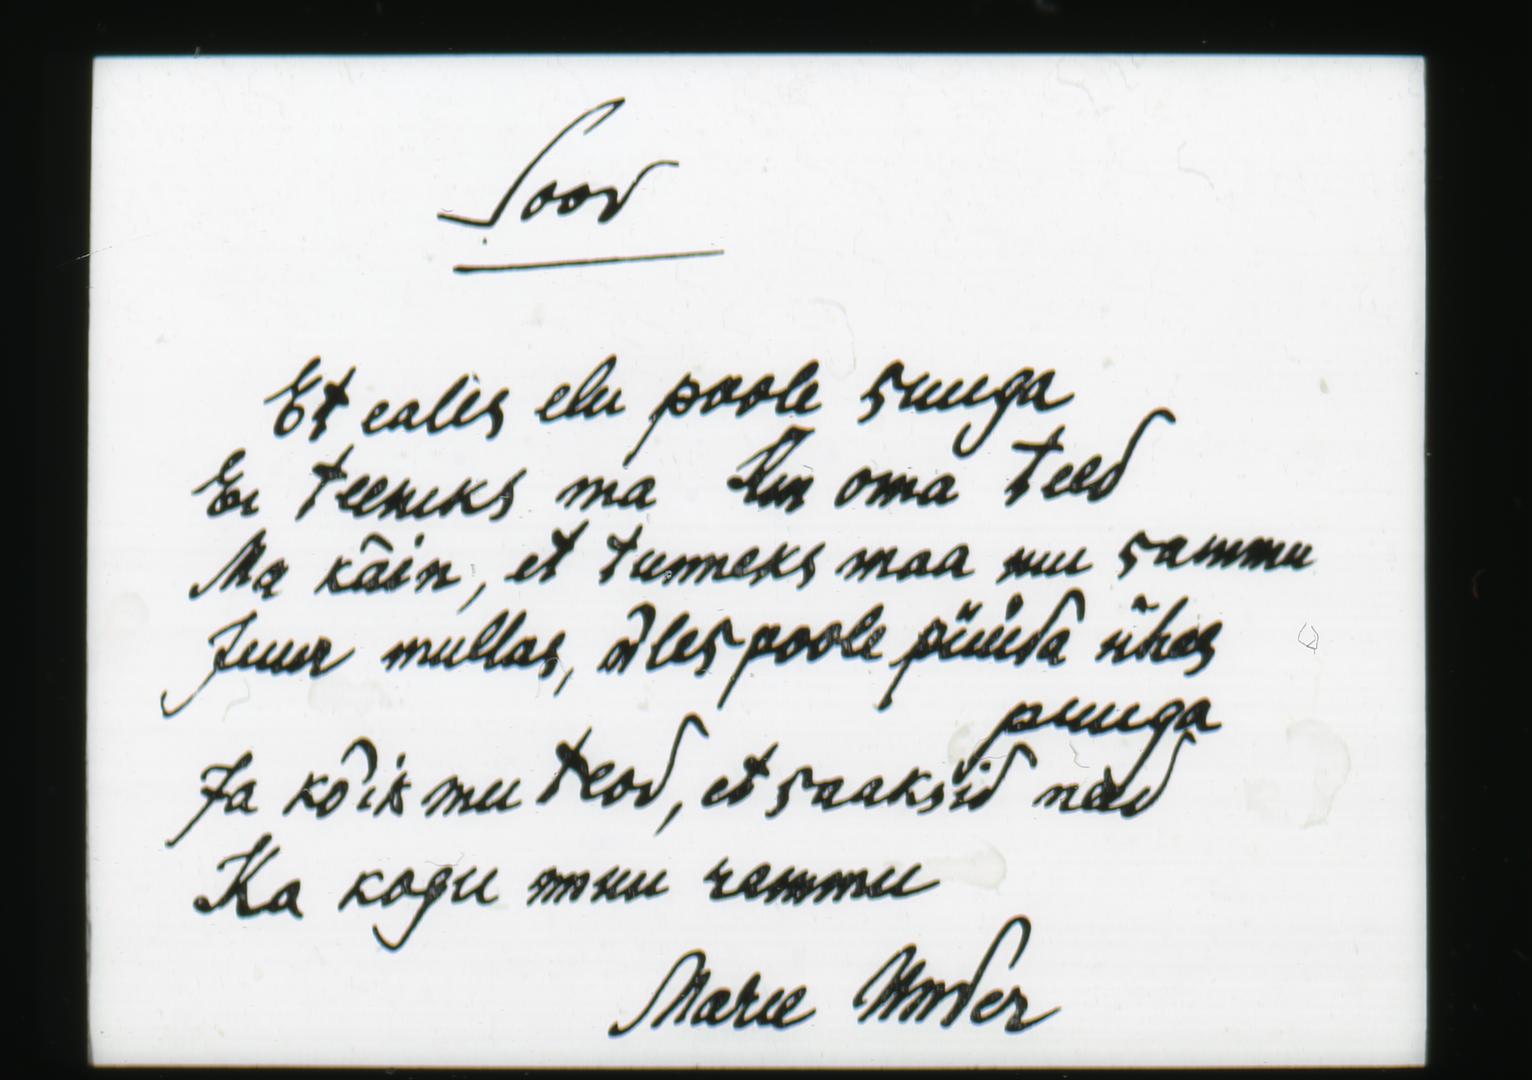 Soov
Et eales elu poole suuga
Ei teeniks ma kui oma teed
Ma käin, et tunneks maa mu sammu
Juur mullas, ülespoole püüda ühes
puuga
Ja kõik mu teod, et saaksid need
Ka kogu mu rammu
Marie Under